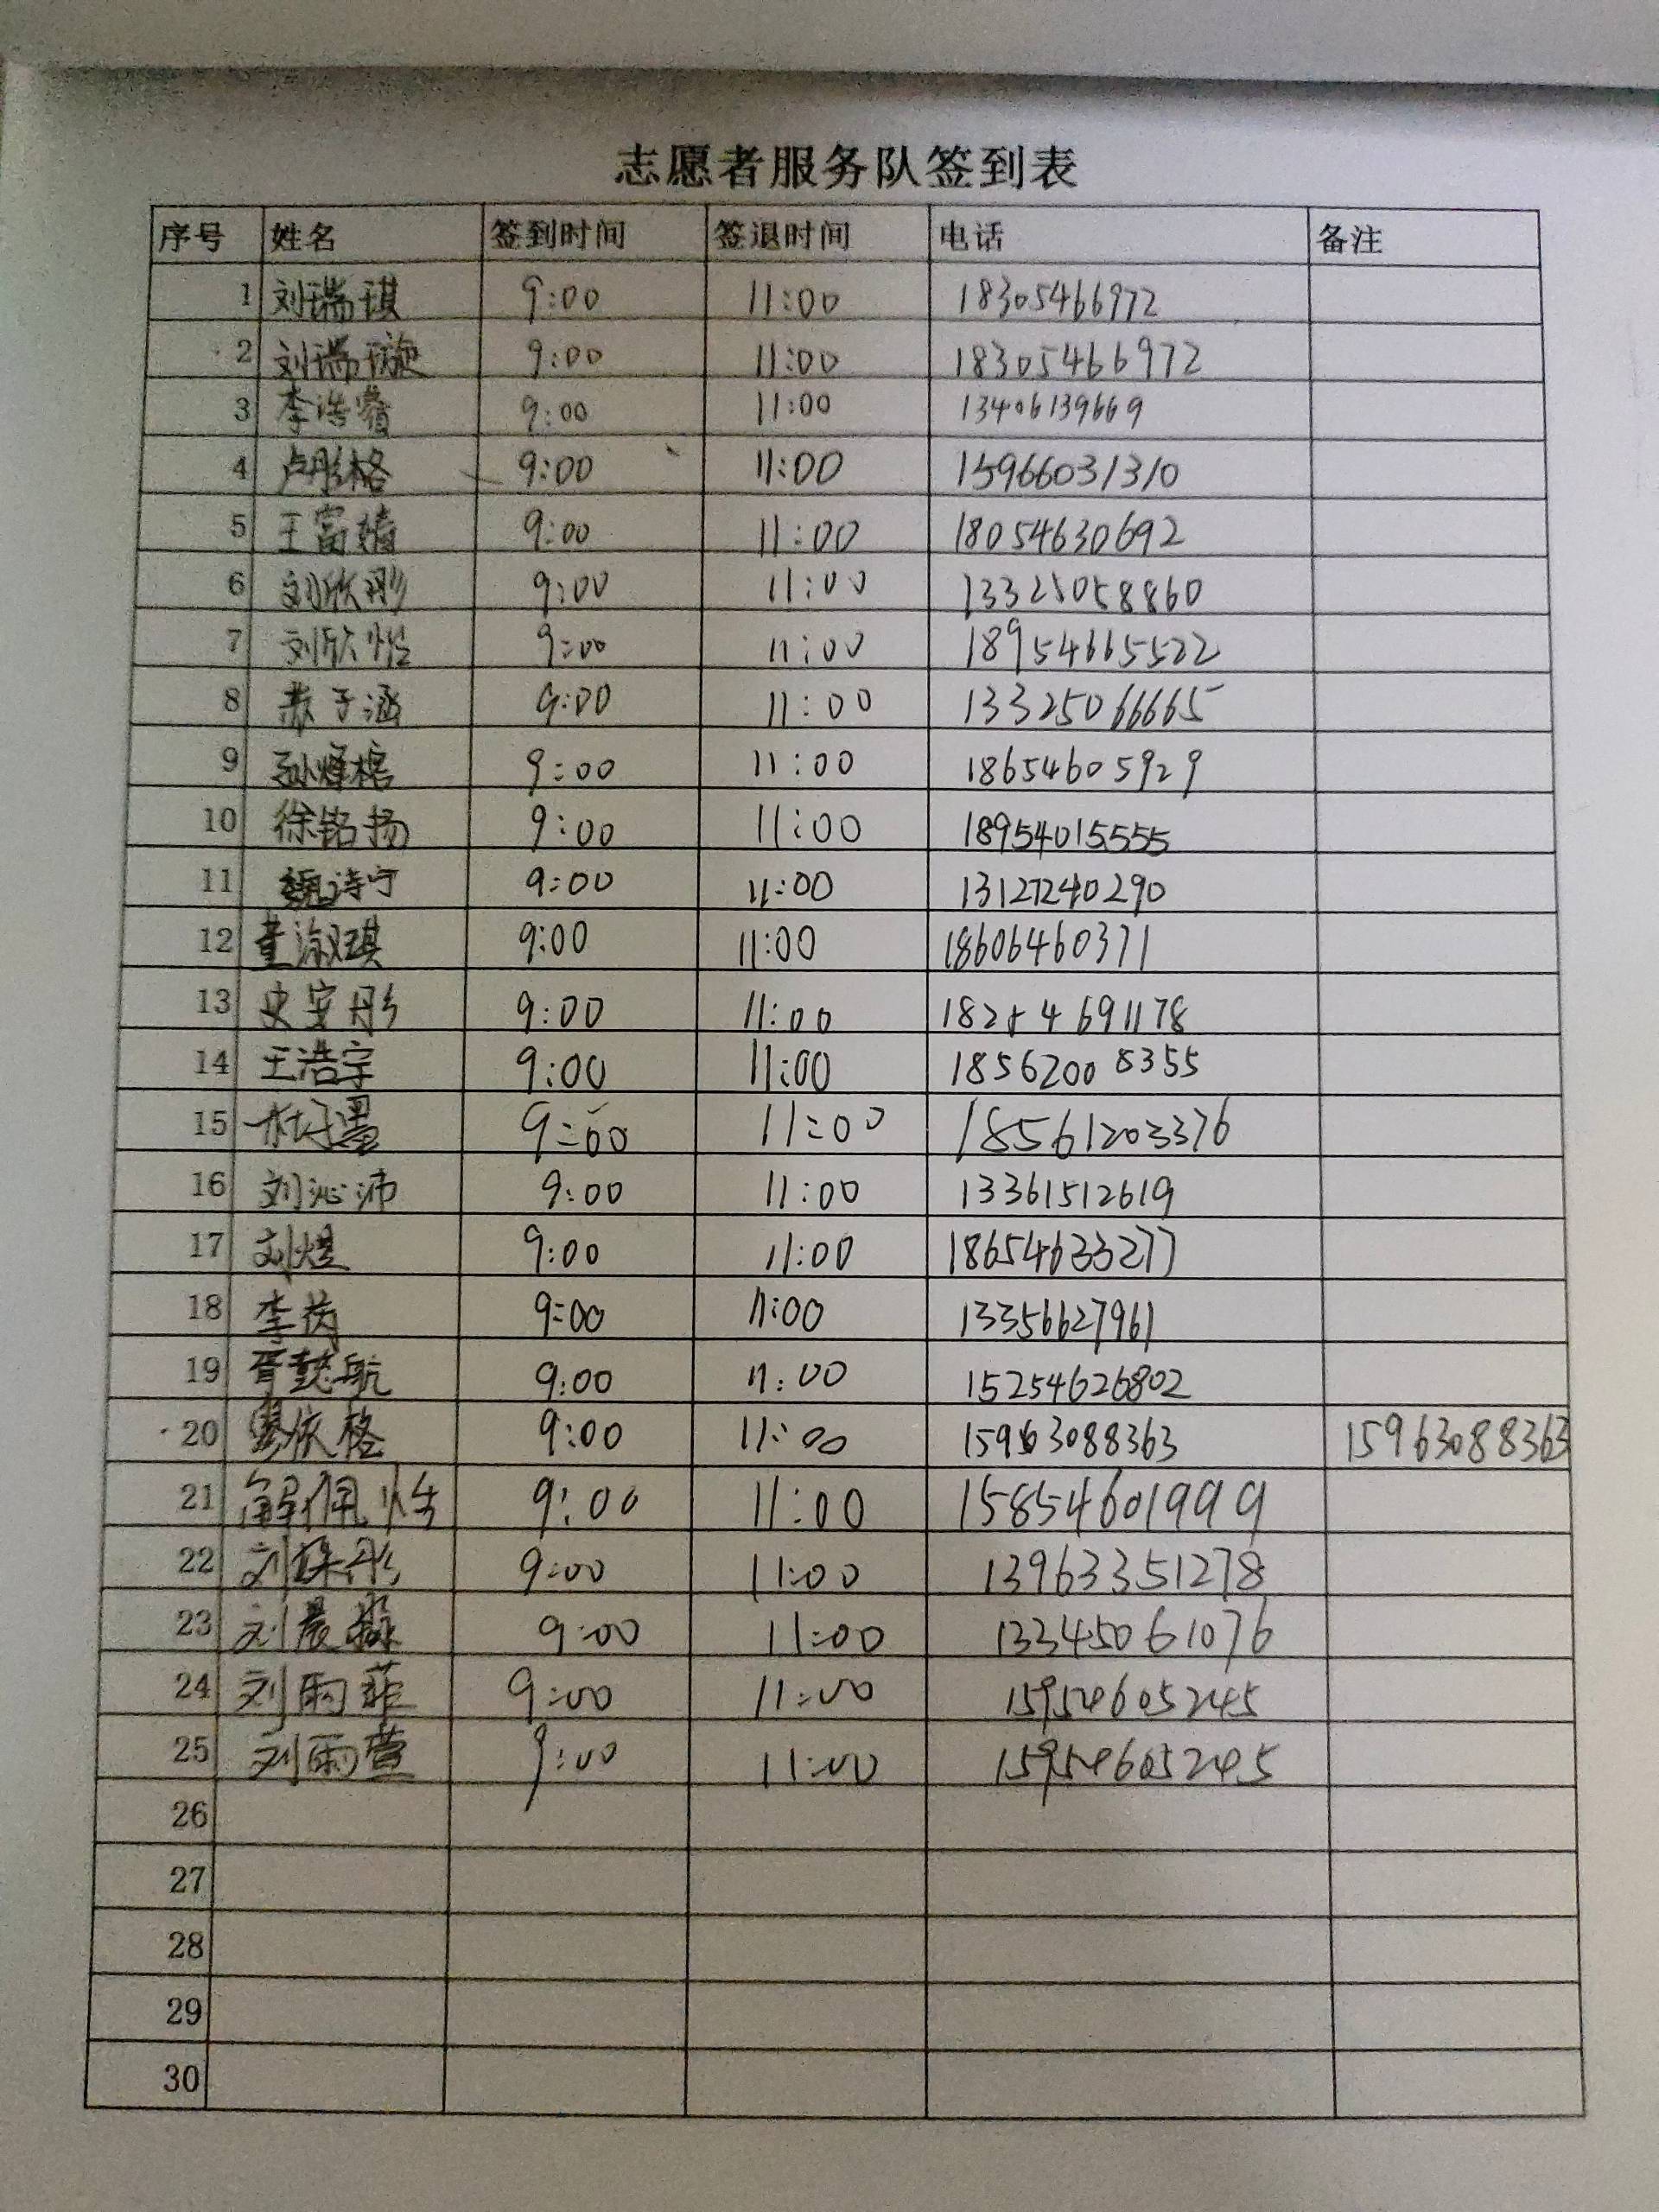 志愿者服务队签到表
序号 姓名 签到时间 签退时间 电话 备注
1 刘瑞琪 9:00 11:00 18305466972
2 刘瑞璇 9:00 11:00 18305466972
3 李浩 9:00 11:00 13406139669
4 卢彤格 9:00 11:00 15966031310
5 王富婧 9:00 11:00 18054630692
6 刘欣彤 9:00 11:00
7 刘欣怡 9:00 11:00 18954665522
8 子涵 9:00 11:00 13325066665
9 9:00 11:00 18654605929
10 徐铭扬 9:00 11:00 18954015555
11 魏诗宁 9:00 11:00 13127240290
12 董淑琪 9:00 11:00 18606460371
13 史宝彤 9:00 11:00
14 王浩宇 9:00 11:00 18562008355
15 9:00 11:00 18561203376
16 刘沁沛 9:00 11:00 13361512619
17 刘煜 9:00 11:00 18654633277
18 李芮 9:00 11:00 13356627961
19 胥懿航 9:00 11:00 15254626802
20 依格 9:00 11:00 15963088363 15963088363
21 解佩怡 9:00 11:00 15854601999
22 刘珠彤 9:00 11:00 13963351278
23 刘晨 9:00 11:00 13345061076
24 刘雨菲 9:00 11:00 15954605245
25 刘雨萱 9:00 11:00 15954605245
26
27
28
29
30